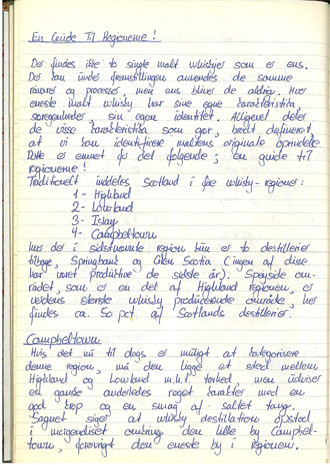 En Guide Til Regionerne!
Der findes ikke to single malt whiskyer som er ens.
Der kan under fremstillingen anvendes de samme
råvarer og processer, men ens bliver de aldrig. Hver
eneste malt whisky har sine egne karakteristika,
særegenheder, sin egen identitet. Alligevel deler
de visse karakteristika som gør, bredt defineret,
at vi kan identificere maltens originale oprindelse
Dette er emnet for det følgende; en guide til
regionerne!
Traditionelt inddeles Scotland i fire whisky-regioner:
1 - Highland
2 - Lowland
3 - Islay
4 - Campbeltown
hvor der i sidstnævnte region kun er to destillerier
tilbage, Springbank og Glen Scotia (ingen af disse
har været produktive de sidste år). Speyside om-
rådet, som er en del af Highland regionen, er
verdens største whisky producerende område, her
findes ca. 50 pct af Scotlands destillerier.
Campbeltown
Hvis det nu til dags er muligt at kategorisere
denne region, må den ligge et sted mellem
Highland og Lowland m.h.t. tørhed, men udviser
en ganske anderledes røget karakter med en
god krop og en smag af saltet tang.
Sagnet siger at whisky destillation opstod
i omkring den lille by Campbel-
town, forøvrigt den eneste by i regionen.